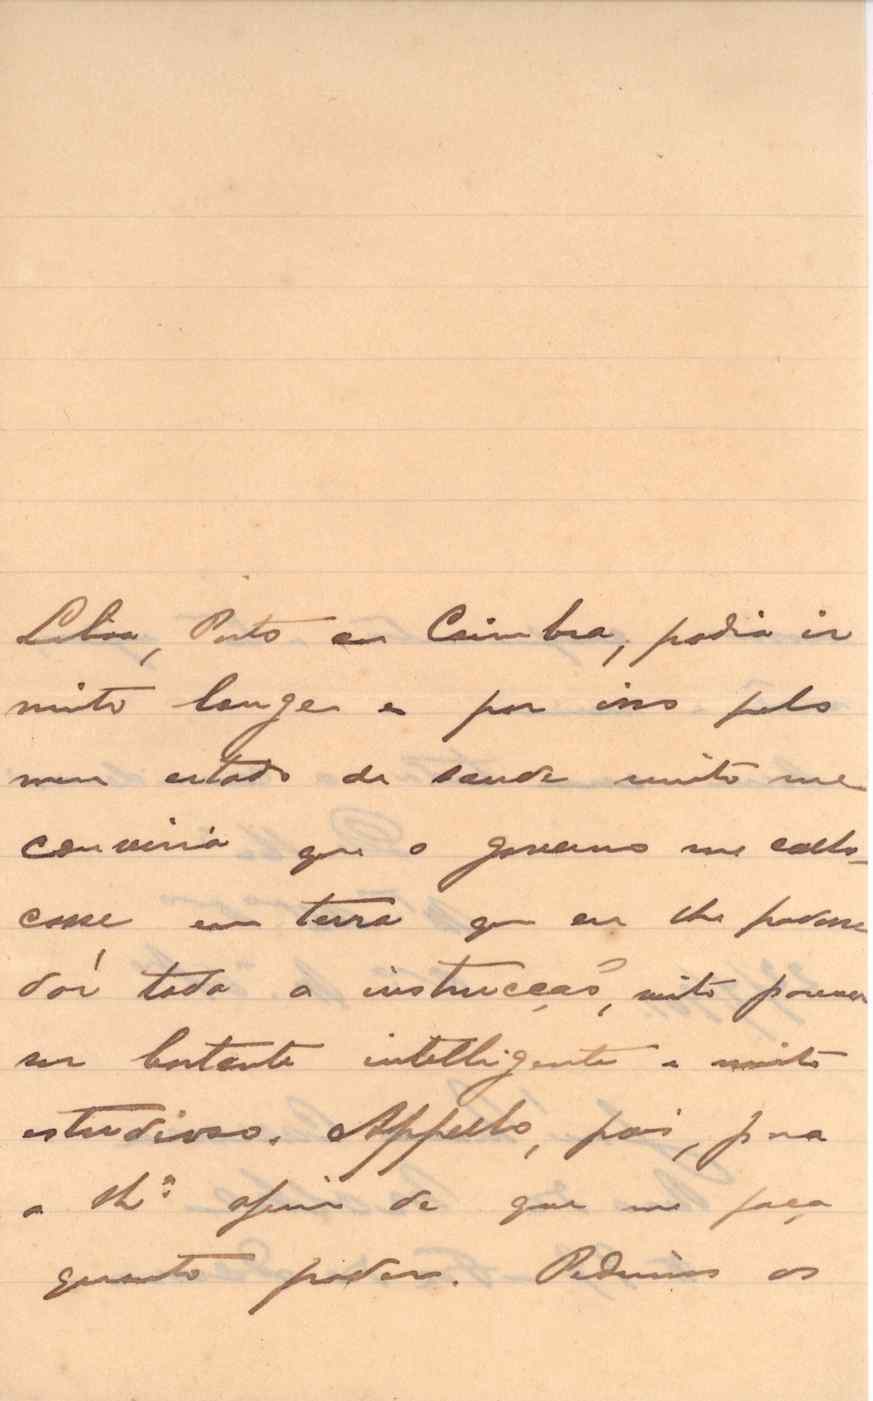 Lisboa, Porto ou Coimbra, podia ir
muito longe e por isso pelo
meu estado de saude muito me
conviria que o governo me collo-
casse em terra que eu lhe podesse
dár toda a instrucção, visto parecer
ser bastante intelligente e muito
estudioso. Appello, pois, para
a afim de que me faça
quanto poder. Pedimos os